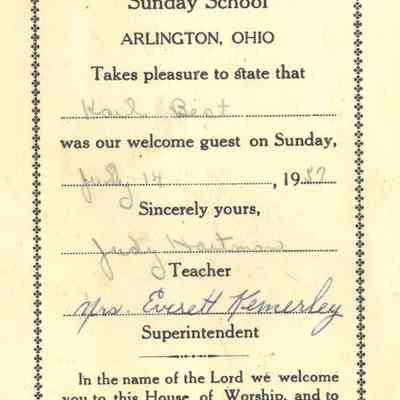 Sunday School
ARLINGTON, OHIO
Takes pleasure to state that
Karl Best
was our welcome guest on Sunday,
July 14, 1957
Sincerely yours,
Judy Hartman
Teacher
Mrs Everett Kemerley
Superintendent
In the name of the Lord we welcome
you to this House of Worship, and to